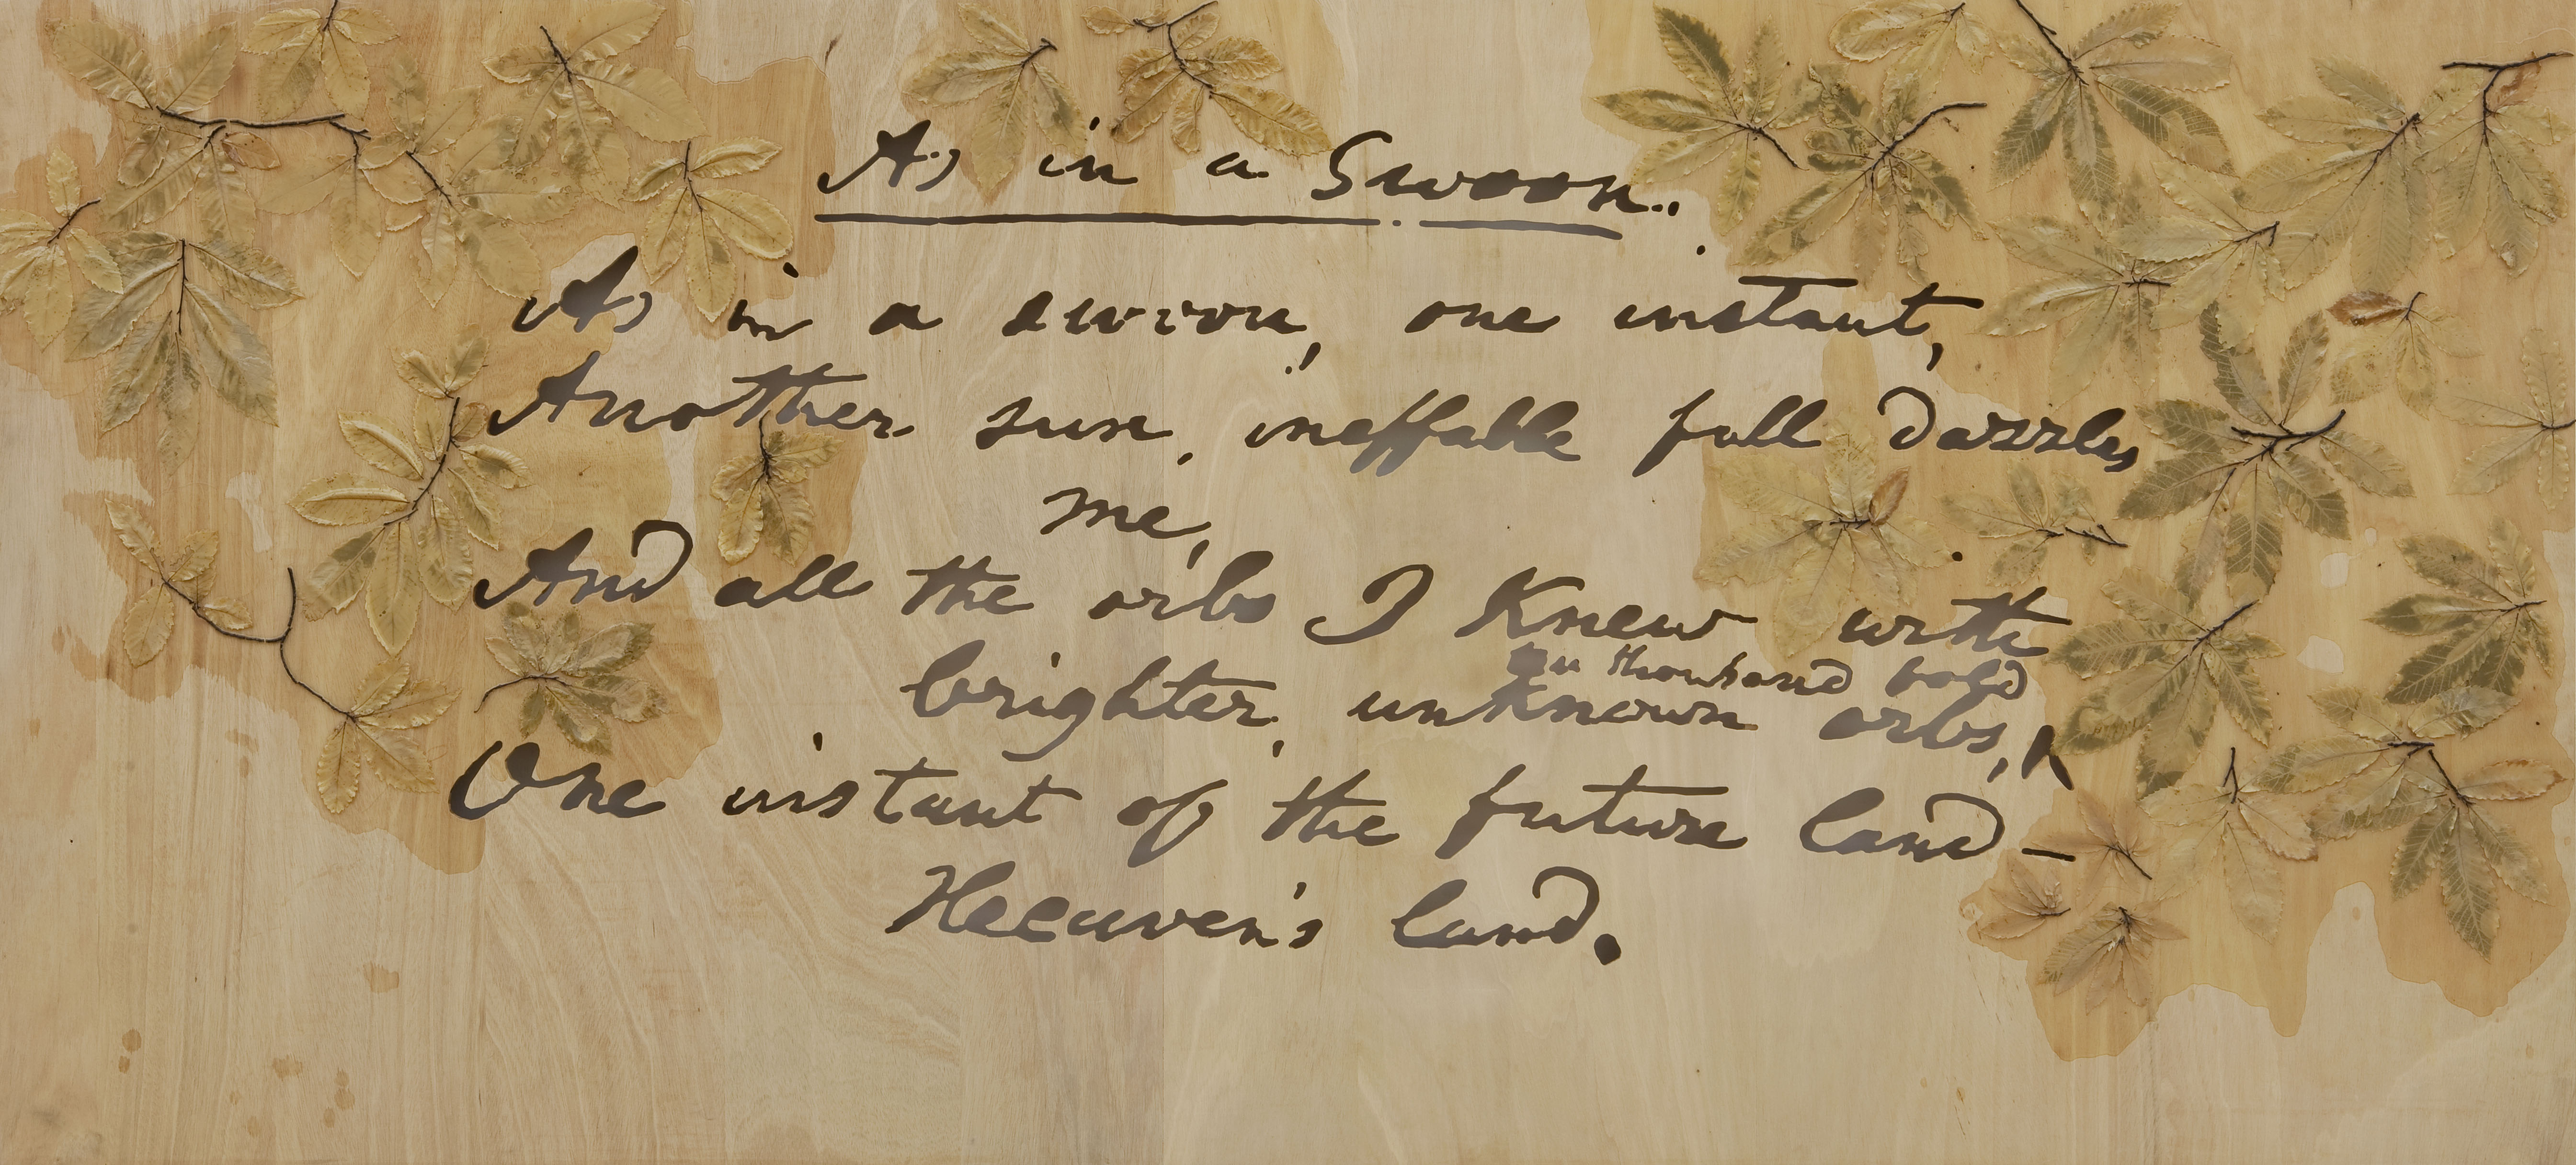 As in a Swoon.
As in a swoon, one instant,
Another sun, ineffable full dazzles
me,
And all the orbs I Knew with
thousand fold
brighter, unknown orbs,
One instant of the future land –
Heeaven's land.